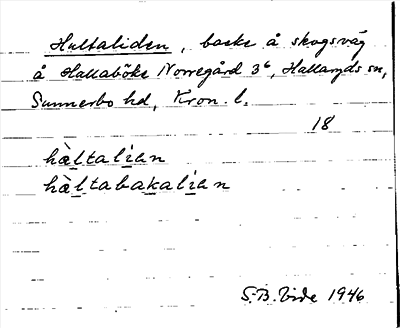 Hultaliden, backe å skogsväg
å Hallaböke Norregård 3⁶, Hallaryds sn,
Sunnerbo hd, Kron. l.
18
hàltalian
hàltabakalian
S.B. Vide 1946